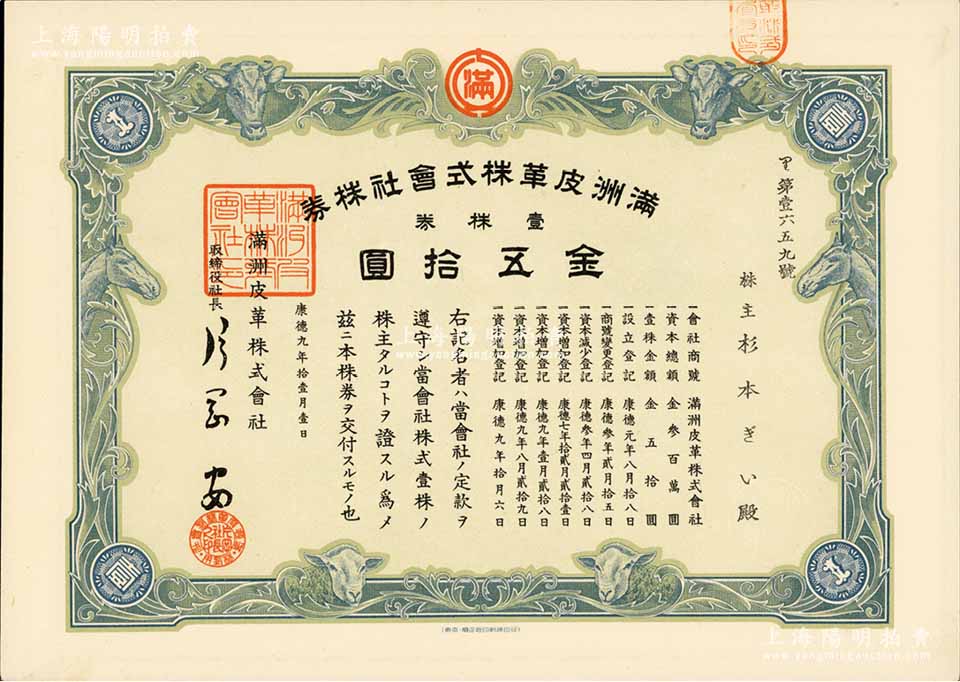 上海陽明拍賣
www.yangmingauction.com
滿
滿洲皮革株式會社株券
壹株券
金五拾圓
第壹六五九號
株主 杉本ぎい殿
一會社商號 滿洲皮革株式會社
一資本總額 金參百萬圓
壹株金額 金五拾圓
一設立登記 康德元年八月拾八日
一商號變更登記 康德參年貳月拾五日
一資本減少登記 康德參年四月貳拾八日
一資本增加登記 康德七年拾貳月貳拾壹日
一資本增加登記 康德九年壹月貳拾八日
一資本增加登記 康德九年八月貳拾九日
一資本增加登記 康德九年拾月六日
右記名者ハ當會社ノ定款ヲ
遵守シ當會社株式壹株ノ
株主タルコトヲ證スル爲メ
玆ニ本株券ヲ交付スルモノ也
康德九年拾壹月壹日
滿洲皮革株式會社
取締役社長
滿洲皮革株式會社印
上海陽明拍賣
www.yangmingauction.com
上海陽明拍賣
www.yangmingauction.com